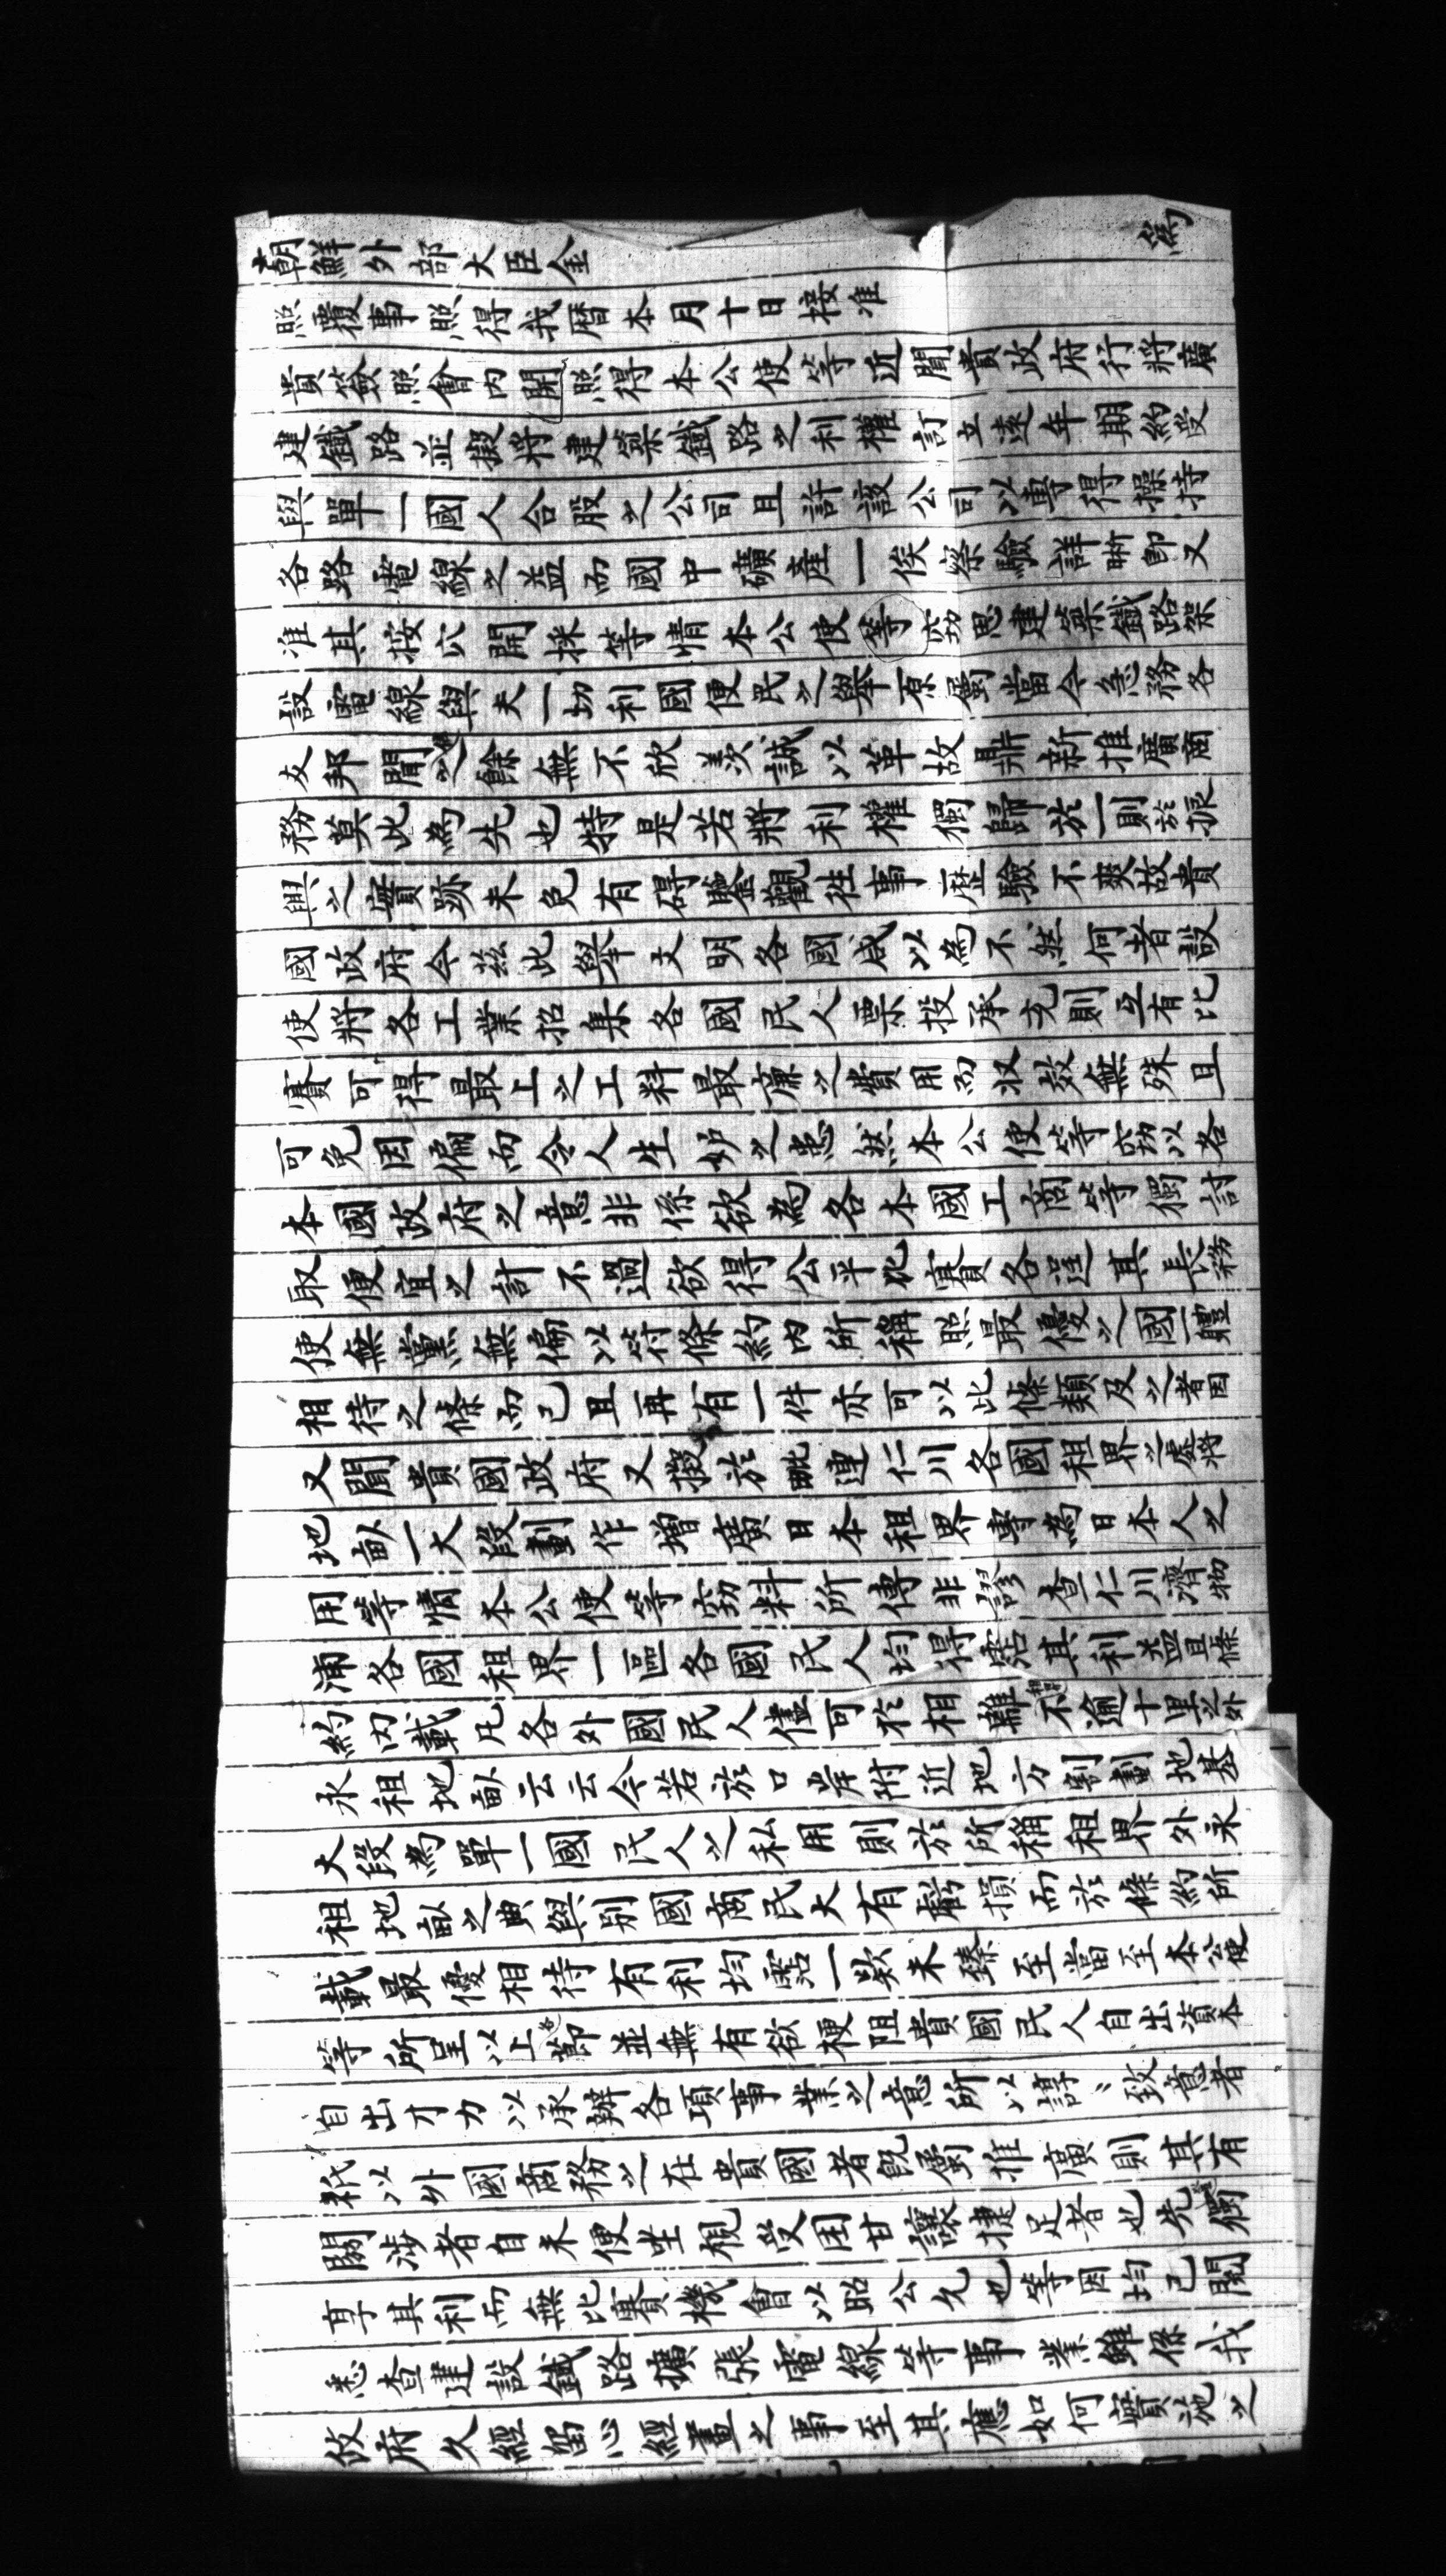 朝鮮外部大臣金　　　　　　　　為
照覆事照得我曆本月十日接准
貴簽照會內開照得本公使等近聞貴政府行將廣
建鐵路並擬將建築鐵路之利權訂立遠年期約受
與單一國人合股之公司且許該公司以專得操持
各路電線之益而國中礦產一俟察驗詳晰即又
准其按穴開採等情本公使等竊思建築鐵路架
設電線與夫一切利國便民之舉原屬當今急務各
友邦聞之餘無不欣羨誠以革故鼎新推廣商
務莫此為先也特是若將利權獨歸於一則於振
興之實跡未免有碍鑒觀往事歷驗不爽故貴
國政府今茲此舉文明各國咸以為不然何者設
使將各工業招集各國民人票投承充則互有比
賽可得最上之工料最廉之費用而收效無殊且
可免因偏而令人生妒之患然本公使等窃以各
本國政府之意非係欲為各本國工商等獨討
取便宜之計不過欲得公平比賽各逞其長務
使無黨無偏以符條約內所稱照最優之國一體
相待之條而已且再有一件亦可以此條類及之者因
又聞貴國政府又擬於毗連仁川各國租界之處將
地畝一大段劃作增廣日本租界專為日本人之
用等情本公使等窃料所傳非謬查仁川濟物
浦各國租界一區各國民人均得霑其利益且條
約內載凡各外國民人儘可於相離不逾十里之外
永租地畝云云今若於口岸附近地方割劃地基
大段為單一國民人之私用則於所稱租界外永
租地畝之典與別國商民大有虧損而於條約所
載最優相待有利均霑一款未臻至當至本公使
等所呈以上各節並無有欲梗阻貴國民人自出資本
自出才力以承辦各項事業之意所以諄〻致意者
秖以外國商務之在貴國者既屬推廣則其有
關涉者自未便坐視受困甘讓捷足者也先獨
享其利而無比賽機會以昭公允也等因均已閱
悉查建設鐵路擴張電線等事業雖係我
政府久經留心經畫之事至其應如何實施之